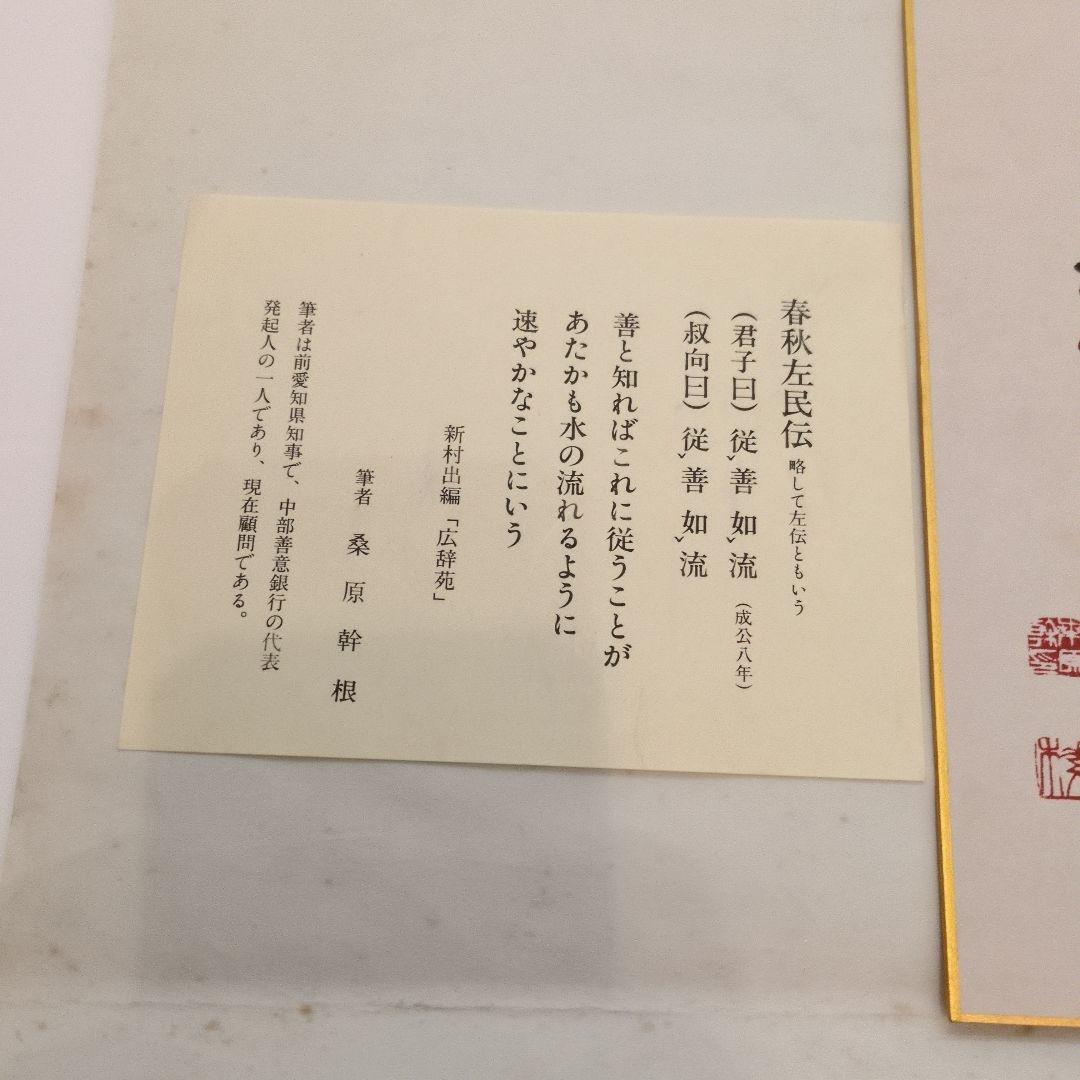 春秋左民伝 略して左伝ともいう
(君子曰) 従レ善 如レ流 (成公八年)
(叔向曰) 従レ善 如レ流
善と知ればこれに従うことが
あたかも水の流れるように
速やかなことにいう
新村出編「広辞苑」
筆者 桑原幹根
筆者は前愛知県知事で、中部善意銀行の代表
発起人の一人であり、現在顧問である。